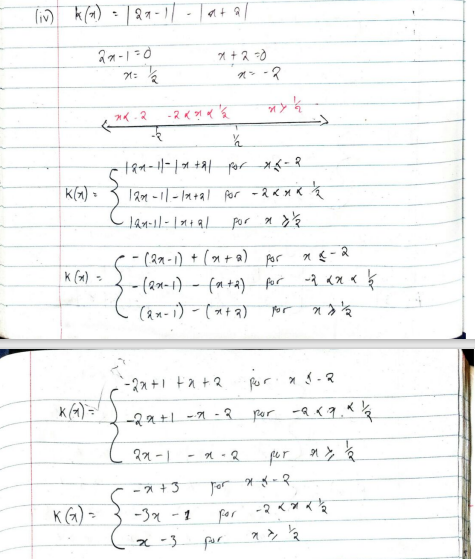 (iv) k(x) = |2x-1| - |x+2|
2x-1=0 x+2=0
x= 1/2 x= -2
x< -2 -2<x<1/2 x> 1/2
-2 1/2
|2x-1|-|x+2| for x≤-2
k(x) = |2x-1|-|x+2| for -2<x<1/2
|2x-1|-|x+2| for x ≥ 1/2
-(2x-1) + (x+2) for x ≤ -2
k(x) = -(2x-1) - (x+2) for -2<x<1/2
(2x-1) - (x+2) for x ≥ 1/2
-2x+1 +x+2 for x ≤ -2
k(x) = -2x+1 -x-2 for -2<x<1/2
2x-1 -x-2 for x ≥ 1/2
-x+3 for x ≤ -2
k(x) = -3x-1 for -2<x<1/2
x-3 for x ≥ 1/2